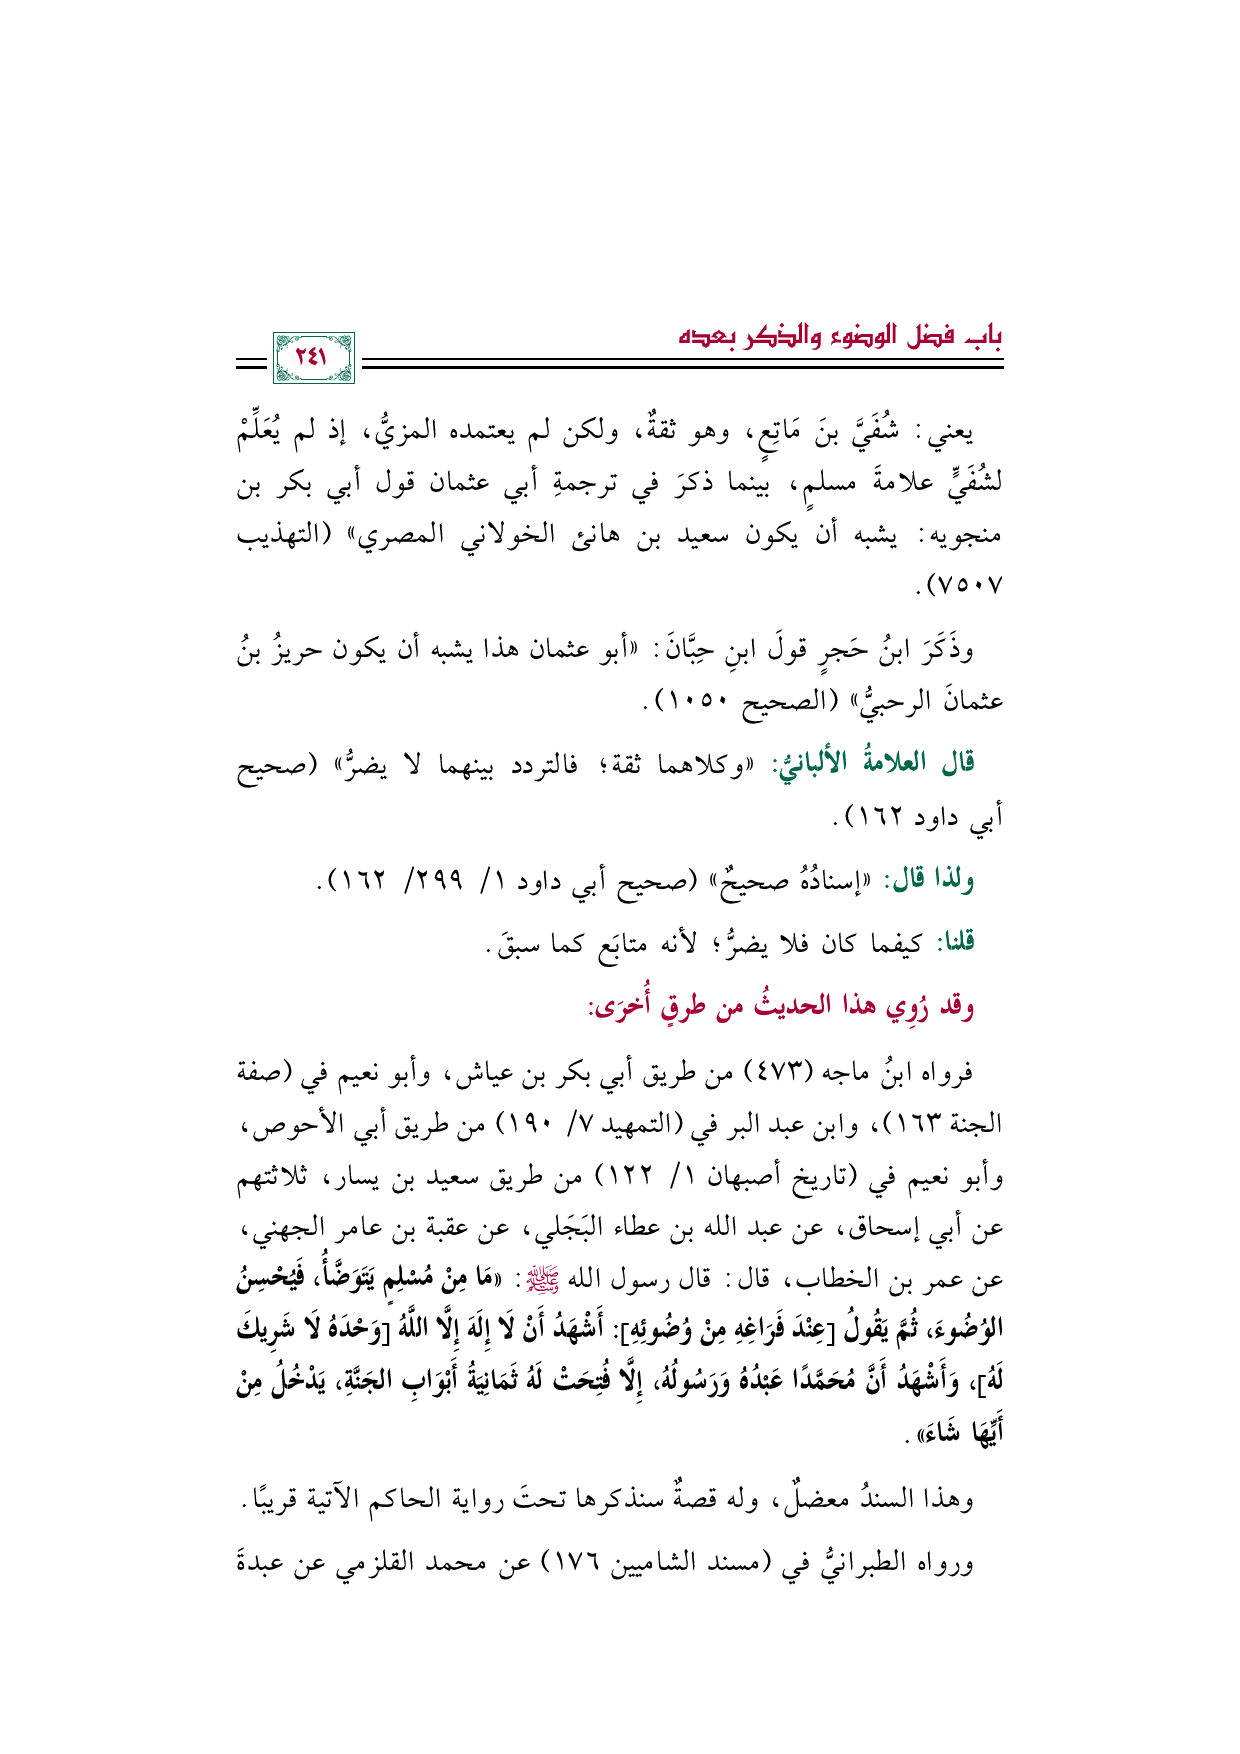 باب فضل الوضوء والذكر بعده
٢٤١
يعني: شُفَيَّ بنَ مَاتِعٍ، وهو ثقةٌ، ولكن لم يعتمده المزيُّ، إذ لم يُعَلِّمْ
لشُفَيٍّ علامةَ مسلمٍ، بينما ذكرَ في ترجمةِ أبي عثمان قول أبي بكر بن
منجويه: يشبه أن يكون سعيد بن هانئ الخولاني المصري» (التهذيب
٧٥٠٧).
وذَكَرَ ابنُ حَجرٍ قولَ ابنِ حِبَّانَ: «أبو عثمان هذا يشبه أن يكون حريزُ بنُ
عثمانَ الرحبيُّ» (الصحيح ١٠٥٠).
قال العلامةُ الألبانيُّ: «وكلاهما ثقة؛ فالتردد بينهما لا يضرُّ» (صحيح
أبي داود ١٦٢).
ولذا قال: «إسنادُهُ صحيحٌ» (صحيح أبي داود ١/ ٢٩٩/ ١٦٢).
قلنا: كيفما كان فلا يضرُّ؛ لأنه متابَع كما سبقَ.
وقد رُوِي هذا الحديثُ من طرقٍ أُخرَى:
فرواه ابنُ ماجه (٤٧٣) من طريق أبي بكر بن عياش، وأبو نعيم في (صفة
الجنة ١٦٣)، وابن عبد البر في (التمهيد ٧/ ١٩٠) من طريق أبي الأحوص،
وأبو نعيم في (تاريخ أصبهان ١/ ١٢٢) من طريق سعيد بن يسار، ثلاثتهم
عن أبي إسحاق، عن عبد الله بن عطاء البَجَلي، عن عقبة بن عامر الجهني،
عن عمر بن الخطاب، قال: قال رسول الله ﷺ: «مَا مِنْ مُسْلِمٍ يَتَوَضَّأُ، فَيُحْسِنُ
الوُضُوءَ، ثُمَّ يَقُولُ [عِنْدَ فَرَاغِهِ مِنْ وُضُوئِهِ]: أَشْهَدُ أَنْ لَا إِلَهَ إِلَّا اللَّهُ [وَحْدَهُ لَا شَرِيكَ
لَهُ]، وَأَشْهَدُ أَنَّ مُحَمَّدًا عَبْدُهُ وَرَسُولُهُ، إِلَّا فُتِحَتْ لَهُ ثَمَانِيَةُ أَبْوَابِ الجَنَّةِ، يَدْخُلُ مِنْ
أَيِّهَا شَاءَ».
وهذا السندُ معضلٌ، وله قصةٌ سنذكرها تحتَ رواية الحاكم الآتية قريبًا.
ورواه الطبرانيُّ في (مسند الشاميين ١٧٦) عن محمد القلزمي عن عبدةَ